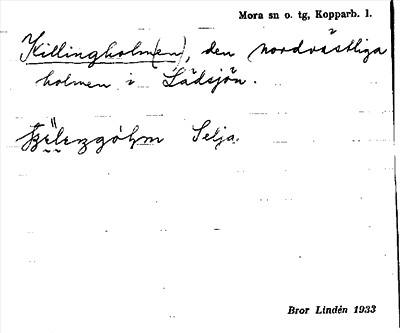 Mora sn o. tg, Kopparb. l.
Killingholm(en), den nordvästliga
holmen i Lådsjön.
Selja.
Bror Lindén 1933